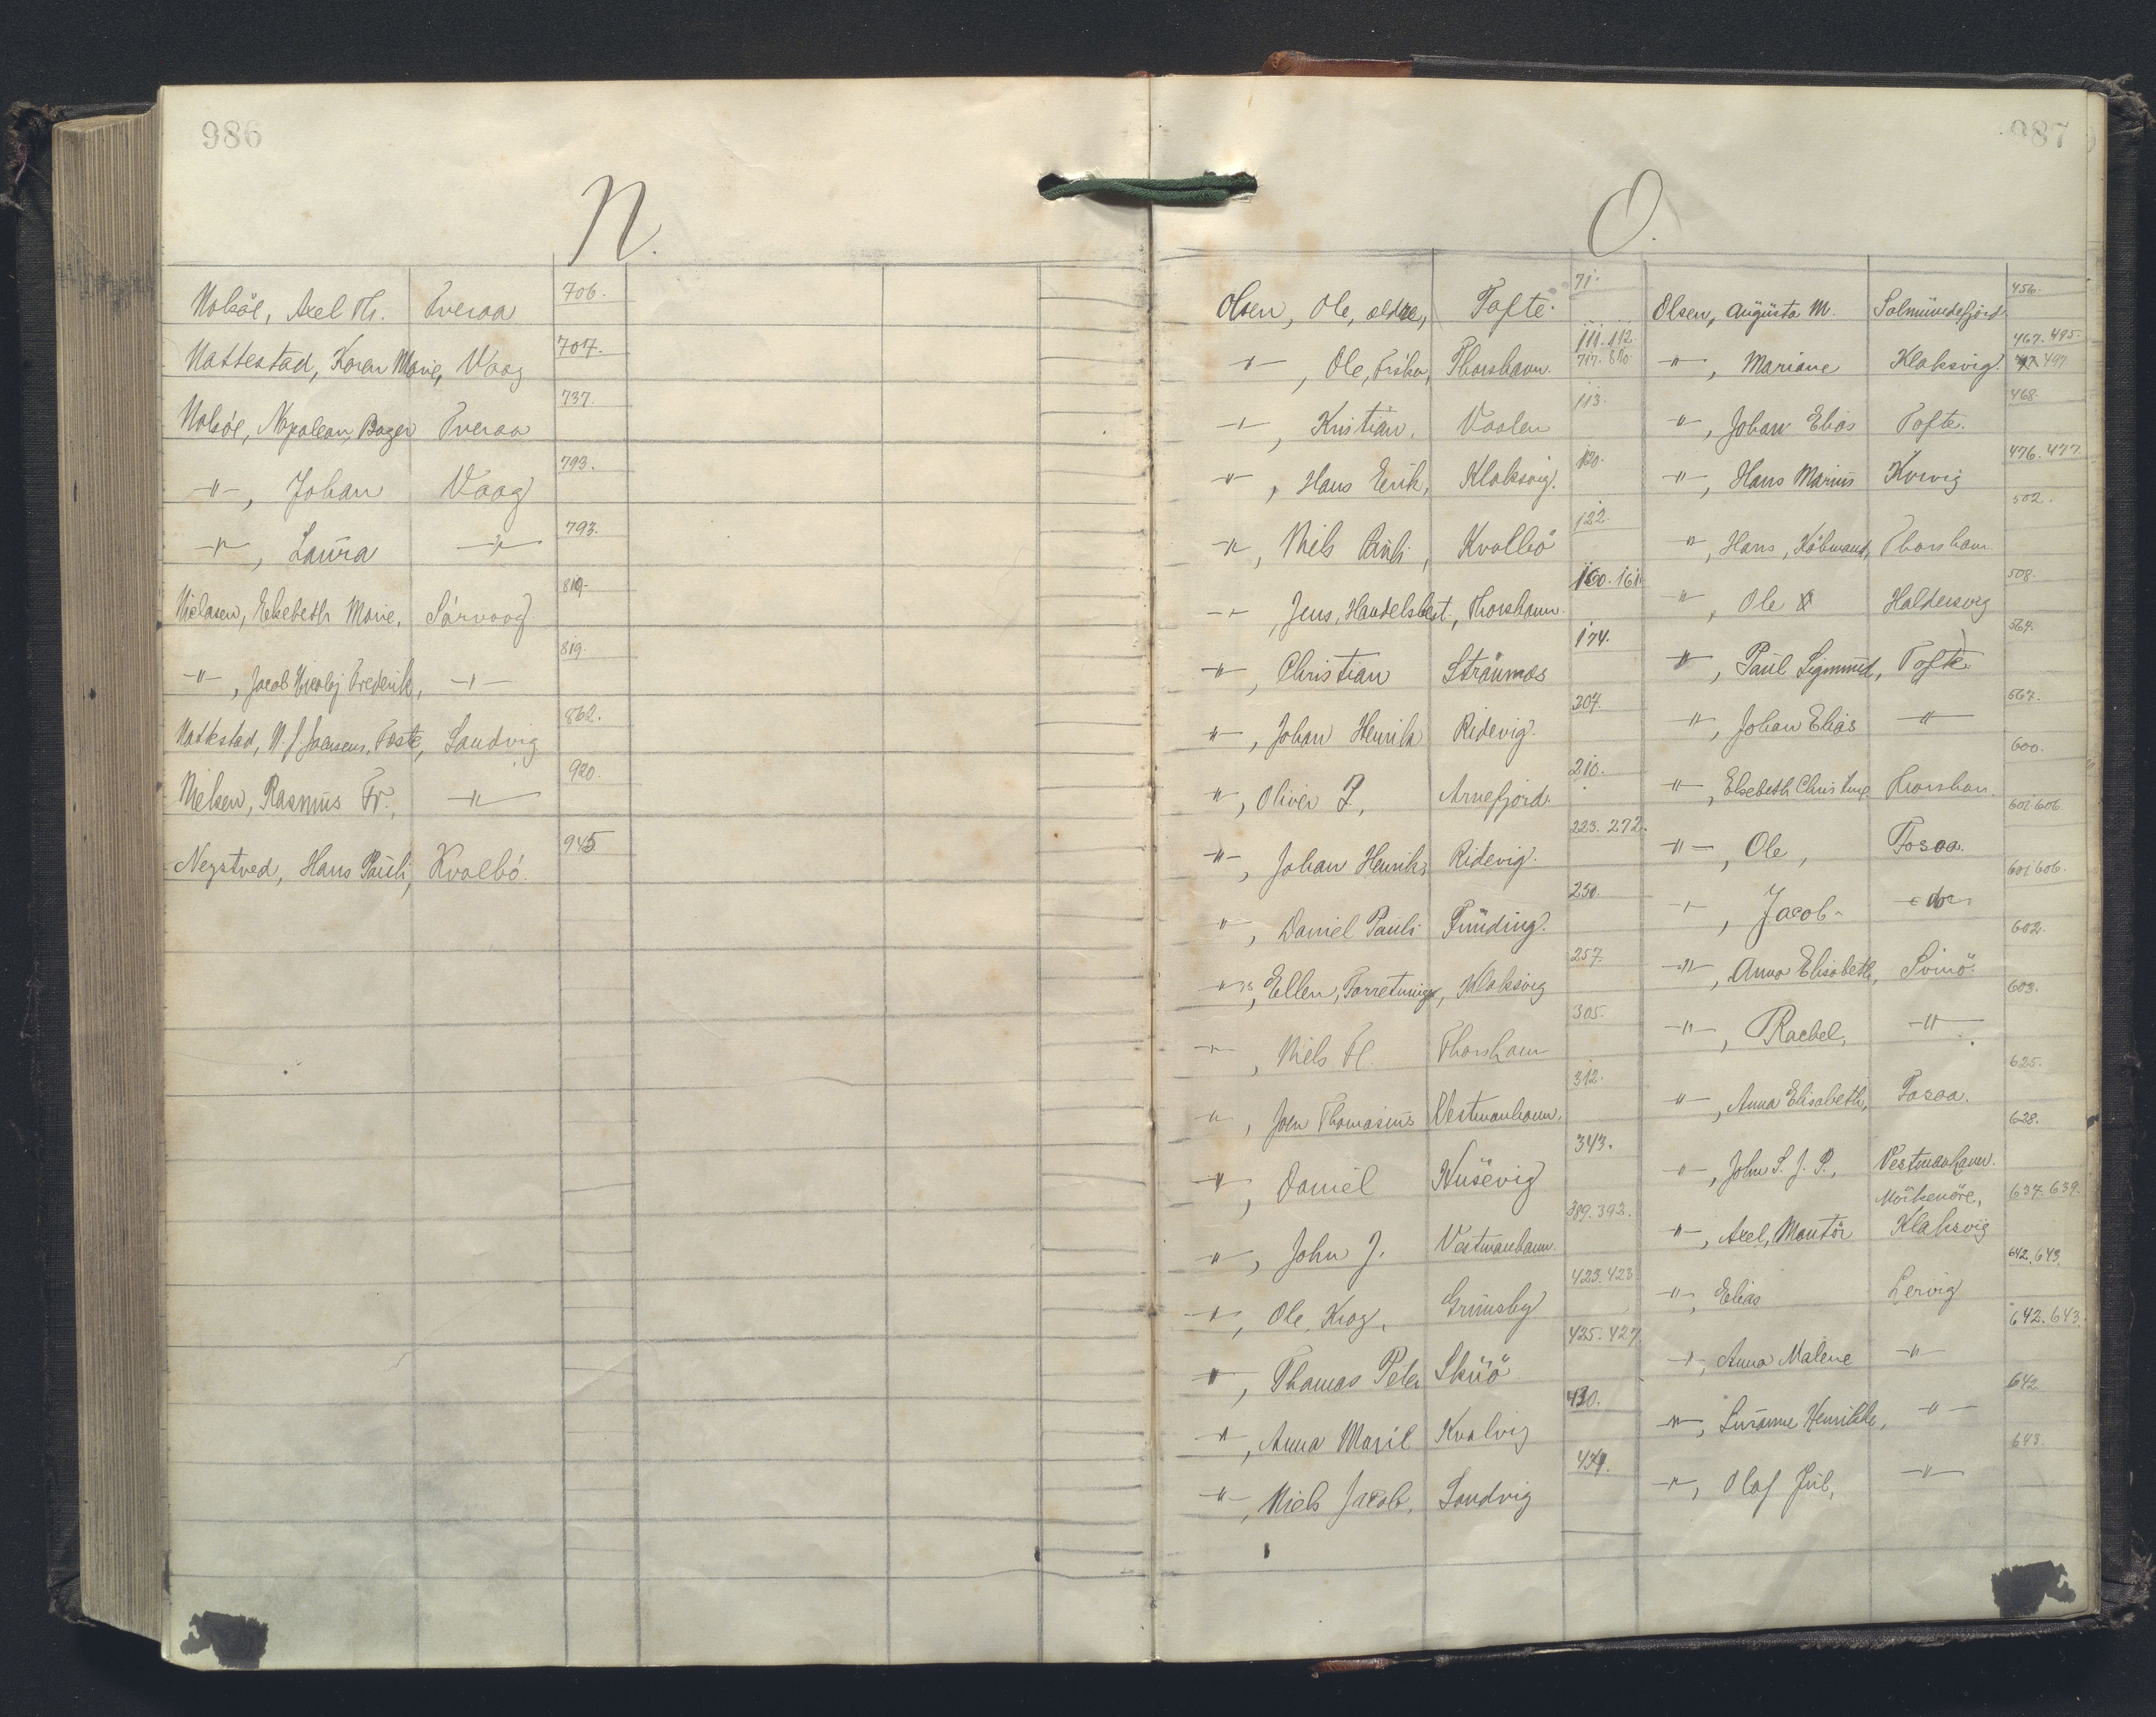 986
N.
Nolsöe, Axel Th. Tveraa 706.
Nattestad, Karen Marie, Vaag 707.
Nolsöe, Napolean, Bager Tveraa 737.
-"-, Johan Vaag 793.
-"-, Laura -"- 793.
Nielasen, Elsebeth Marie, Sörvaag 819.
-"-, Jacob Nicolaj Frederik, -"- 819.
Nattestad, N. J. Joensens, Fäste, Sandvig 862.
Nielsen, Rasmus Fr., -"- 920.
Neystved, Hans Pauli, Kvalbö. 945.
987
O.
Olsen, Ole, ældre, Tofte. 71.
-"-, Ole, Fisker, Thorshavn. 111. 112. 717. 810.
-"-, Kristian, Vaalen 113.
-"-, Hans Erik, Klaksvig. 120.
-"-, Niels Pauli, Kvalbö 122.
-"-, Jens, Handelsbest., Thorshavn. 160. 161.
-"-, Christian Straumas 174.
-"-, Johan Henrik Ridevig. 204.
-"-, Oliver J, Arnefjord. 210.
-"-, Johan Henrik, Ridevig. 223. 272.
-"-, Daniel Pauli Funding. 250.
-"-, Ellen, Forretning, Klaksvig 257.
-"-, Niels Fl. Thorshavn 305.
-"-, Joen Thomasius Vestmanhavn. 312.
-"-, Daniel Husevig 343.
-"-, John J. Vestmanhavn. 389. 392.
-"-, Ole, Krog, Grimsby 423. 423.
-"-, Thomas Peter Skuö 425. 427.
-"-, Anna Maril Kvalvig 430.
-"-, Niels Jacob, Sandvig
Olsen, Augusta M. Salmundefjord. 456.
-"-, Mariane Klaksvig. 467. 495. 497
-"-, Johan Elias Tofte. 468.
-"-, Hans Marius Kvivig 476. 477.
-"-, Hans, Köbmand, Thorshavn 502.
-"-, Ole Haldersvig 508.
-"-, Paul Sigmund, Tofte. 564.
-"-, Johan Elias -"- 567.
-"-, Elsebeth Christine Thorshavn. 600.
-"-, Ole, Fosaa. 601. 606.
-"-, Jacob - do - 601. 606.
-"-, Anna Elisabeth, Svinö. 602.
-"-, Rachel, -"- 603.
-"-, Anna Elisabeth, Fosaa. 625.
-"-, John S. J. P., Vestmanhavn. 628.
-"-, Axel, Montör Mörkenöre, Klaksvig 637. 639.
-"-, Elias Lervig 642. 643.
-"-, Anna Malene -"- 642. 643.
-"-, Susanne Henrikke, -"- 642
-"-, Olaf Jul, -"- 643.